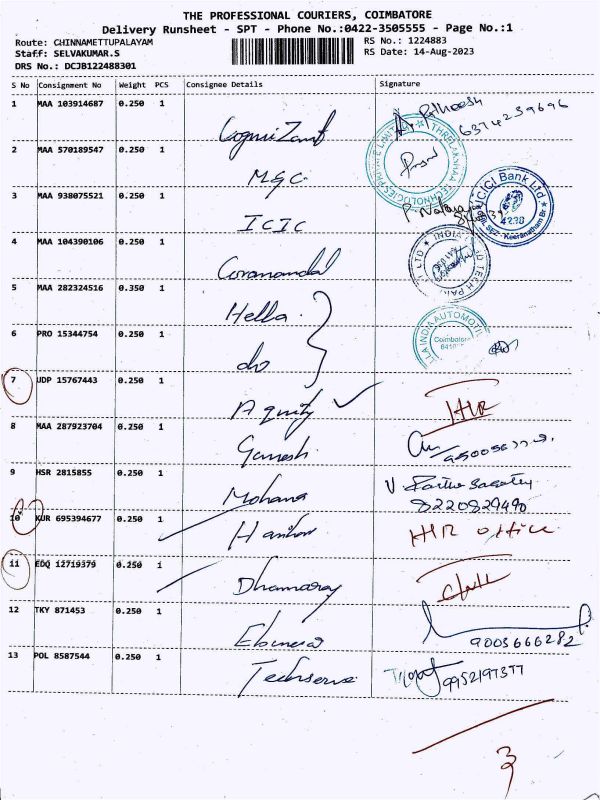 THE PROFESSIONAL COURIERS, COIMBATORE
Delivery Runsheet - SPT - Phone No.:0422-3505555 - Page No.:1
Route: CHINNAMETTUPALAYAM RS No.: 1224883
Staff: SELVAKUMAR.S RS Date: 14-Aug-2023
DRS No.: DCJB122488301
S No Consignment No Weight PCS Consignee Details Signature
1 MAA 103914687 0.250 1 Cognizant 6374239696
2 MAA 570189547 0.250 1 MGC
3 MAA 938075521 0.250 1 ICIC ICICI Bank Ltd 4230 Keeranatham Br.
4 MAA 104390106 0.250 1 Coromandal
5 MAA 282324516 0.350 1 Hella
6 PRO 15344754 0.250 1 do INDIA AUTOMOTI Coimbatore
7 UDP 15767443 0.250 1 Aquity HIR
8 MAA 287923704 0.250 1 Ganesh
9 HSR 2815855 0.250 1 Mohana 8220829490
10 KUR 695394677 0.250 1 HIR office
11 EDQ 12719379 0.250 1 Dhamaray
12 TKY 871453 0.250 1 9003666282
13 POL 8587544 0.250 1 Techserve 9952197377
3